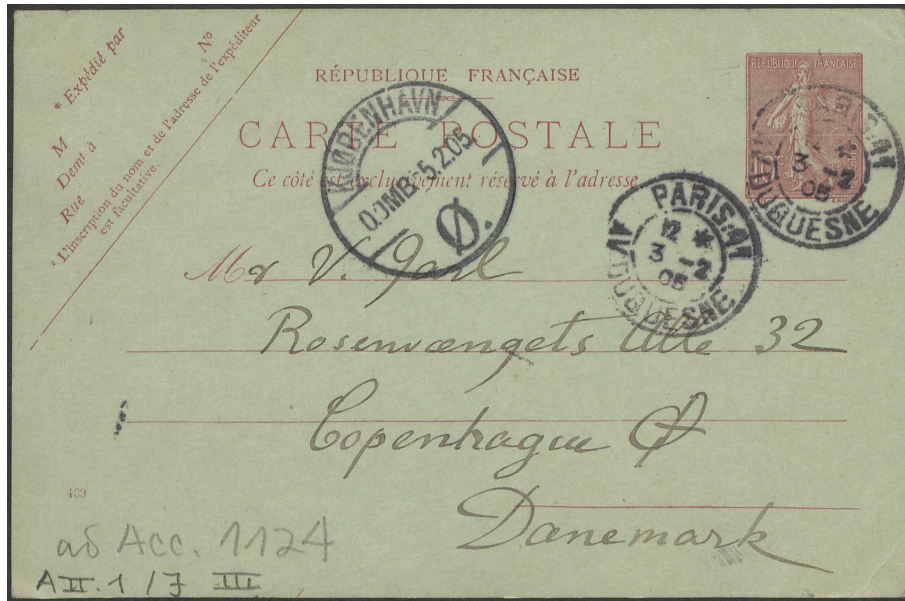 * Expédié par
M
No
Demt à
Rue
* L'inscription du nom et de l'adresse de l'expéditeur
est facultative.
RÉPUBLIQUE FRANÇAISE
CARTE POSTALE
Ce côté est exclusivement réservé à l'adresse
REPUBLIQUE FRANÇAISE
KJØBENHAVN
O.OMB 5.2.05
Ø.
PARIS 41
12 *
3 -2
05
AV. DUQUESNE
PARIS 41
3 -2
05
AV. DUQUESNE
Mr V. Jarl
Rosenvængets Alle 32
Copenhague Ø
Danemark
469
ad Acc. 1124
A II. 1 / 7 III